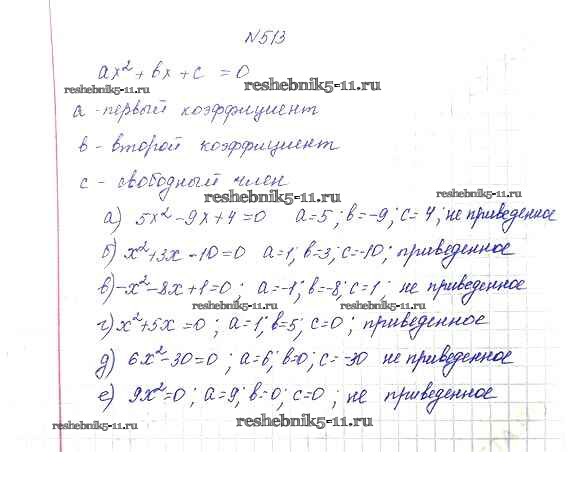 №513
ax² + bx + c = 0
reshebnik5-11.ru reshebnik5-11.ru
a - первый коэффициент
b - второй коэффициент
c - свободный член
reshebnik5-11.ru
а) 5x² - 9x + 4 = 0 a = 5; b = -9; c = 4; не приведенное
б) x² + 3x - 10 = 0 a = 1; b = 3; c = -10; приведенное
в) -x² - 8x + 1 = 0; a = -1; b = -8; c = 1; не приведенное
reshebnik5-11.ru reshebnik5-11.ru
г) x² + 5x = 0; a = 1; b = 5; c = 0; приведенное
д) 6x² - 30 = 0; a = 6; b = 0; c = -30 не приведенное
е) 9x² = 0; a = 9; b = 0; c = 0; не приведенное
reshebnik5-11.ru reshebnik5-11.ru